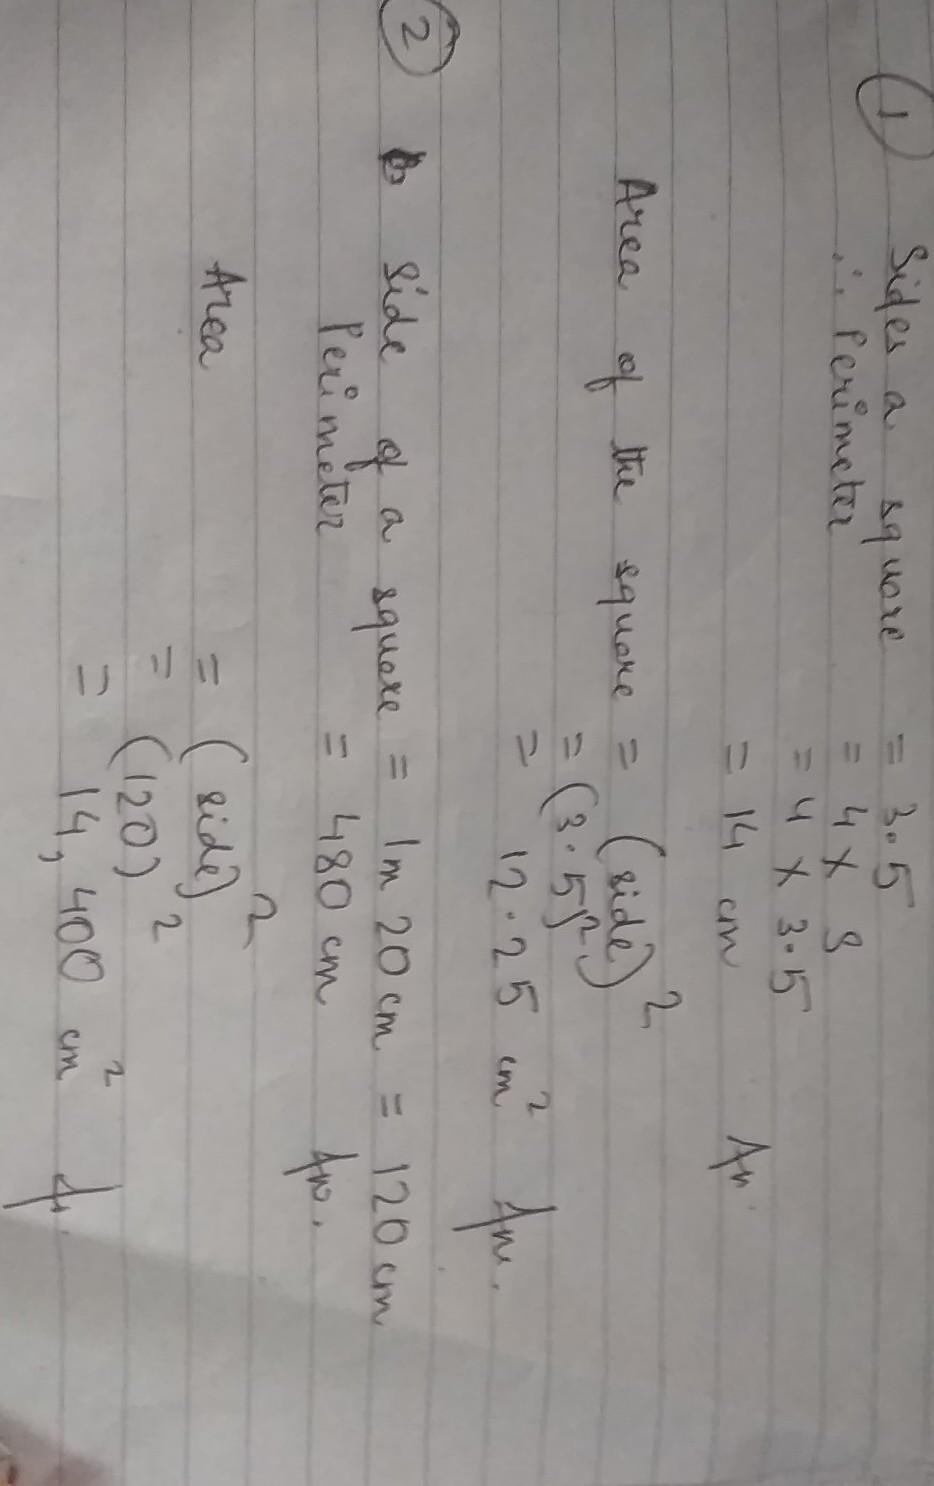 ① Sides a square = 3.5
∴ Perimeter = 4 × s
= 4 × 3.5
= 14 cm An
Area of the square = (side)²
= (3.5)²
= 12.25 cm² An.
② Side of a square = 1m 20 cm = 120 cm
Perimeter = 480 cm An.
Area = (side)²
= (120)²
= 14,400 cm² A.